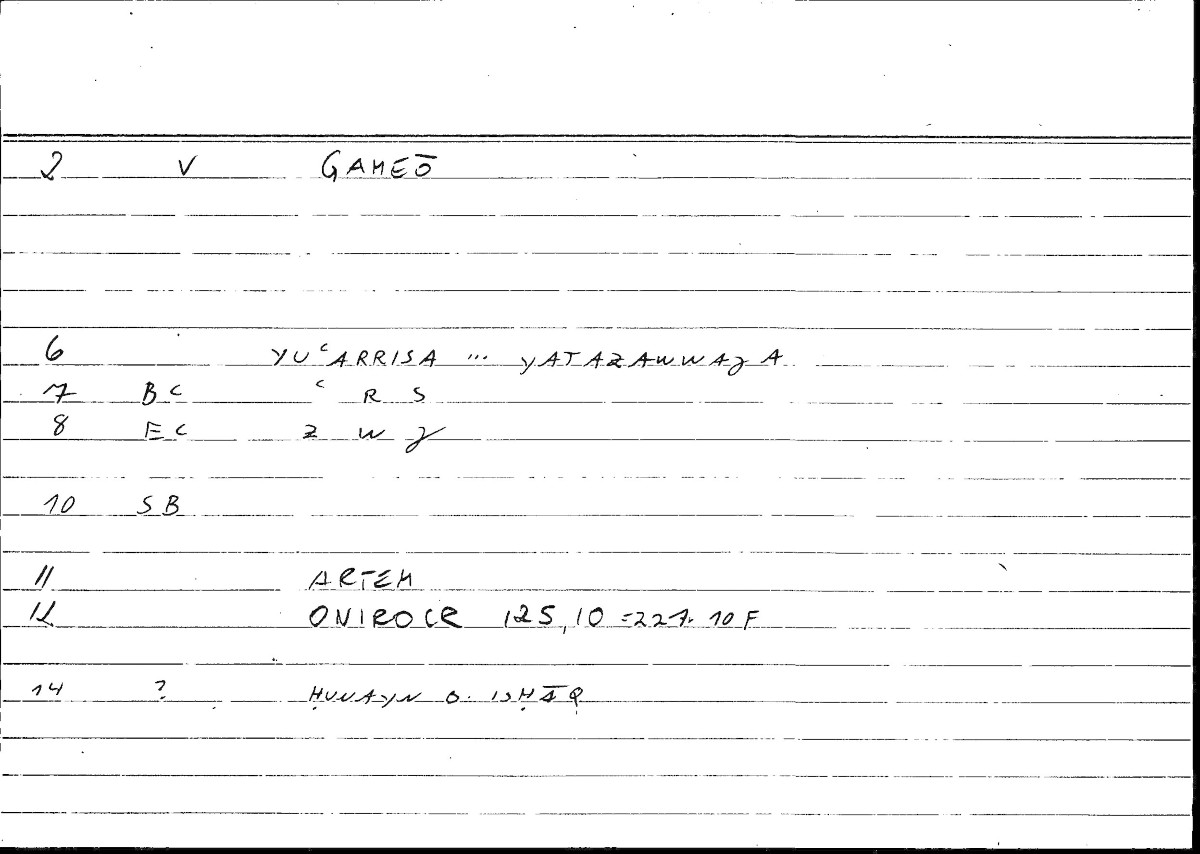 2 V GAMEŌ
6 YUʿARRISA ... YATAZAWWAJA
7 BC ʿ R S
8 EC Z W J
10 SB
11 ARTEM
12 ONIROCR 125,10 = 227. 10 F
14 ? ḤUNAYN B. ISḤĀQ